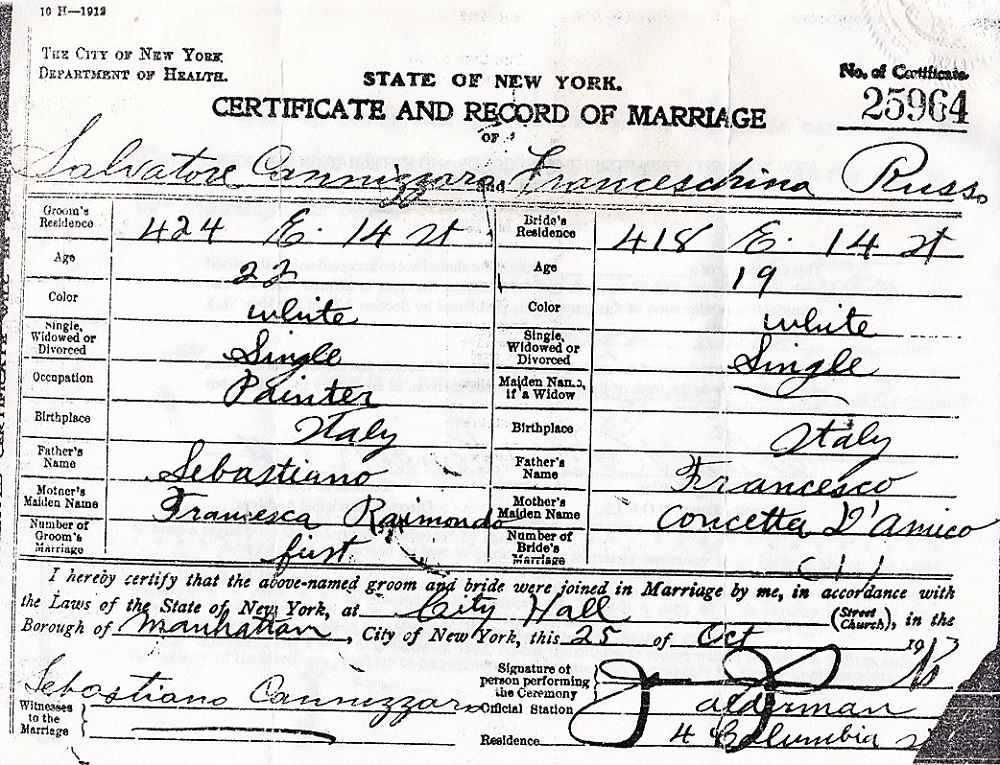 10 H—1912
THE CITY OF NEW YORK.
DEPARTMENT OF HEALTH.
STATE OF NEW YORK.
No. of Certificate.
CERTIFICATE AND RECORD OF MARRIAGE
25964
OF
Salvatore Cannizzaro and Franceschina Russo
Groom's Residence 424 E. 14 st Bride's Residence 418 E. 14 st
Age 23 Age 19
Color white Color white
Single, Widowed or Divorced Single Single, Widowed or Divorced Single
Occupation Painter Maiden Name, if a Widow
Birthplace Italy Birthplace Italy
Father's Name Sebastiano Father's Name Francesco
Mother's Maiden Name Francesca Raimondo Mother's Maiden Name Concetta D'Amico
Number of Groom's Marriage first Number of Bride's Marriage
I hereby certify that the above-named groom and bride were joined in Marriage by me, in accordance with
the Laws of the State of New York, at City Hall (Street Church), in the
Borough of Manhattan, City of New York, this 25 of Oct 1913
Signature of person performing the Ceremony
Sebastiano Cannizzaro Official Station alderman
Witnesses to the Marriage
Residence 4 Columbia